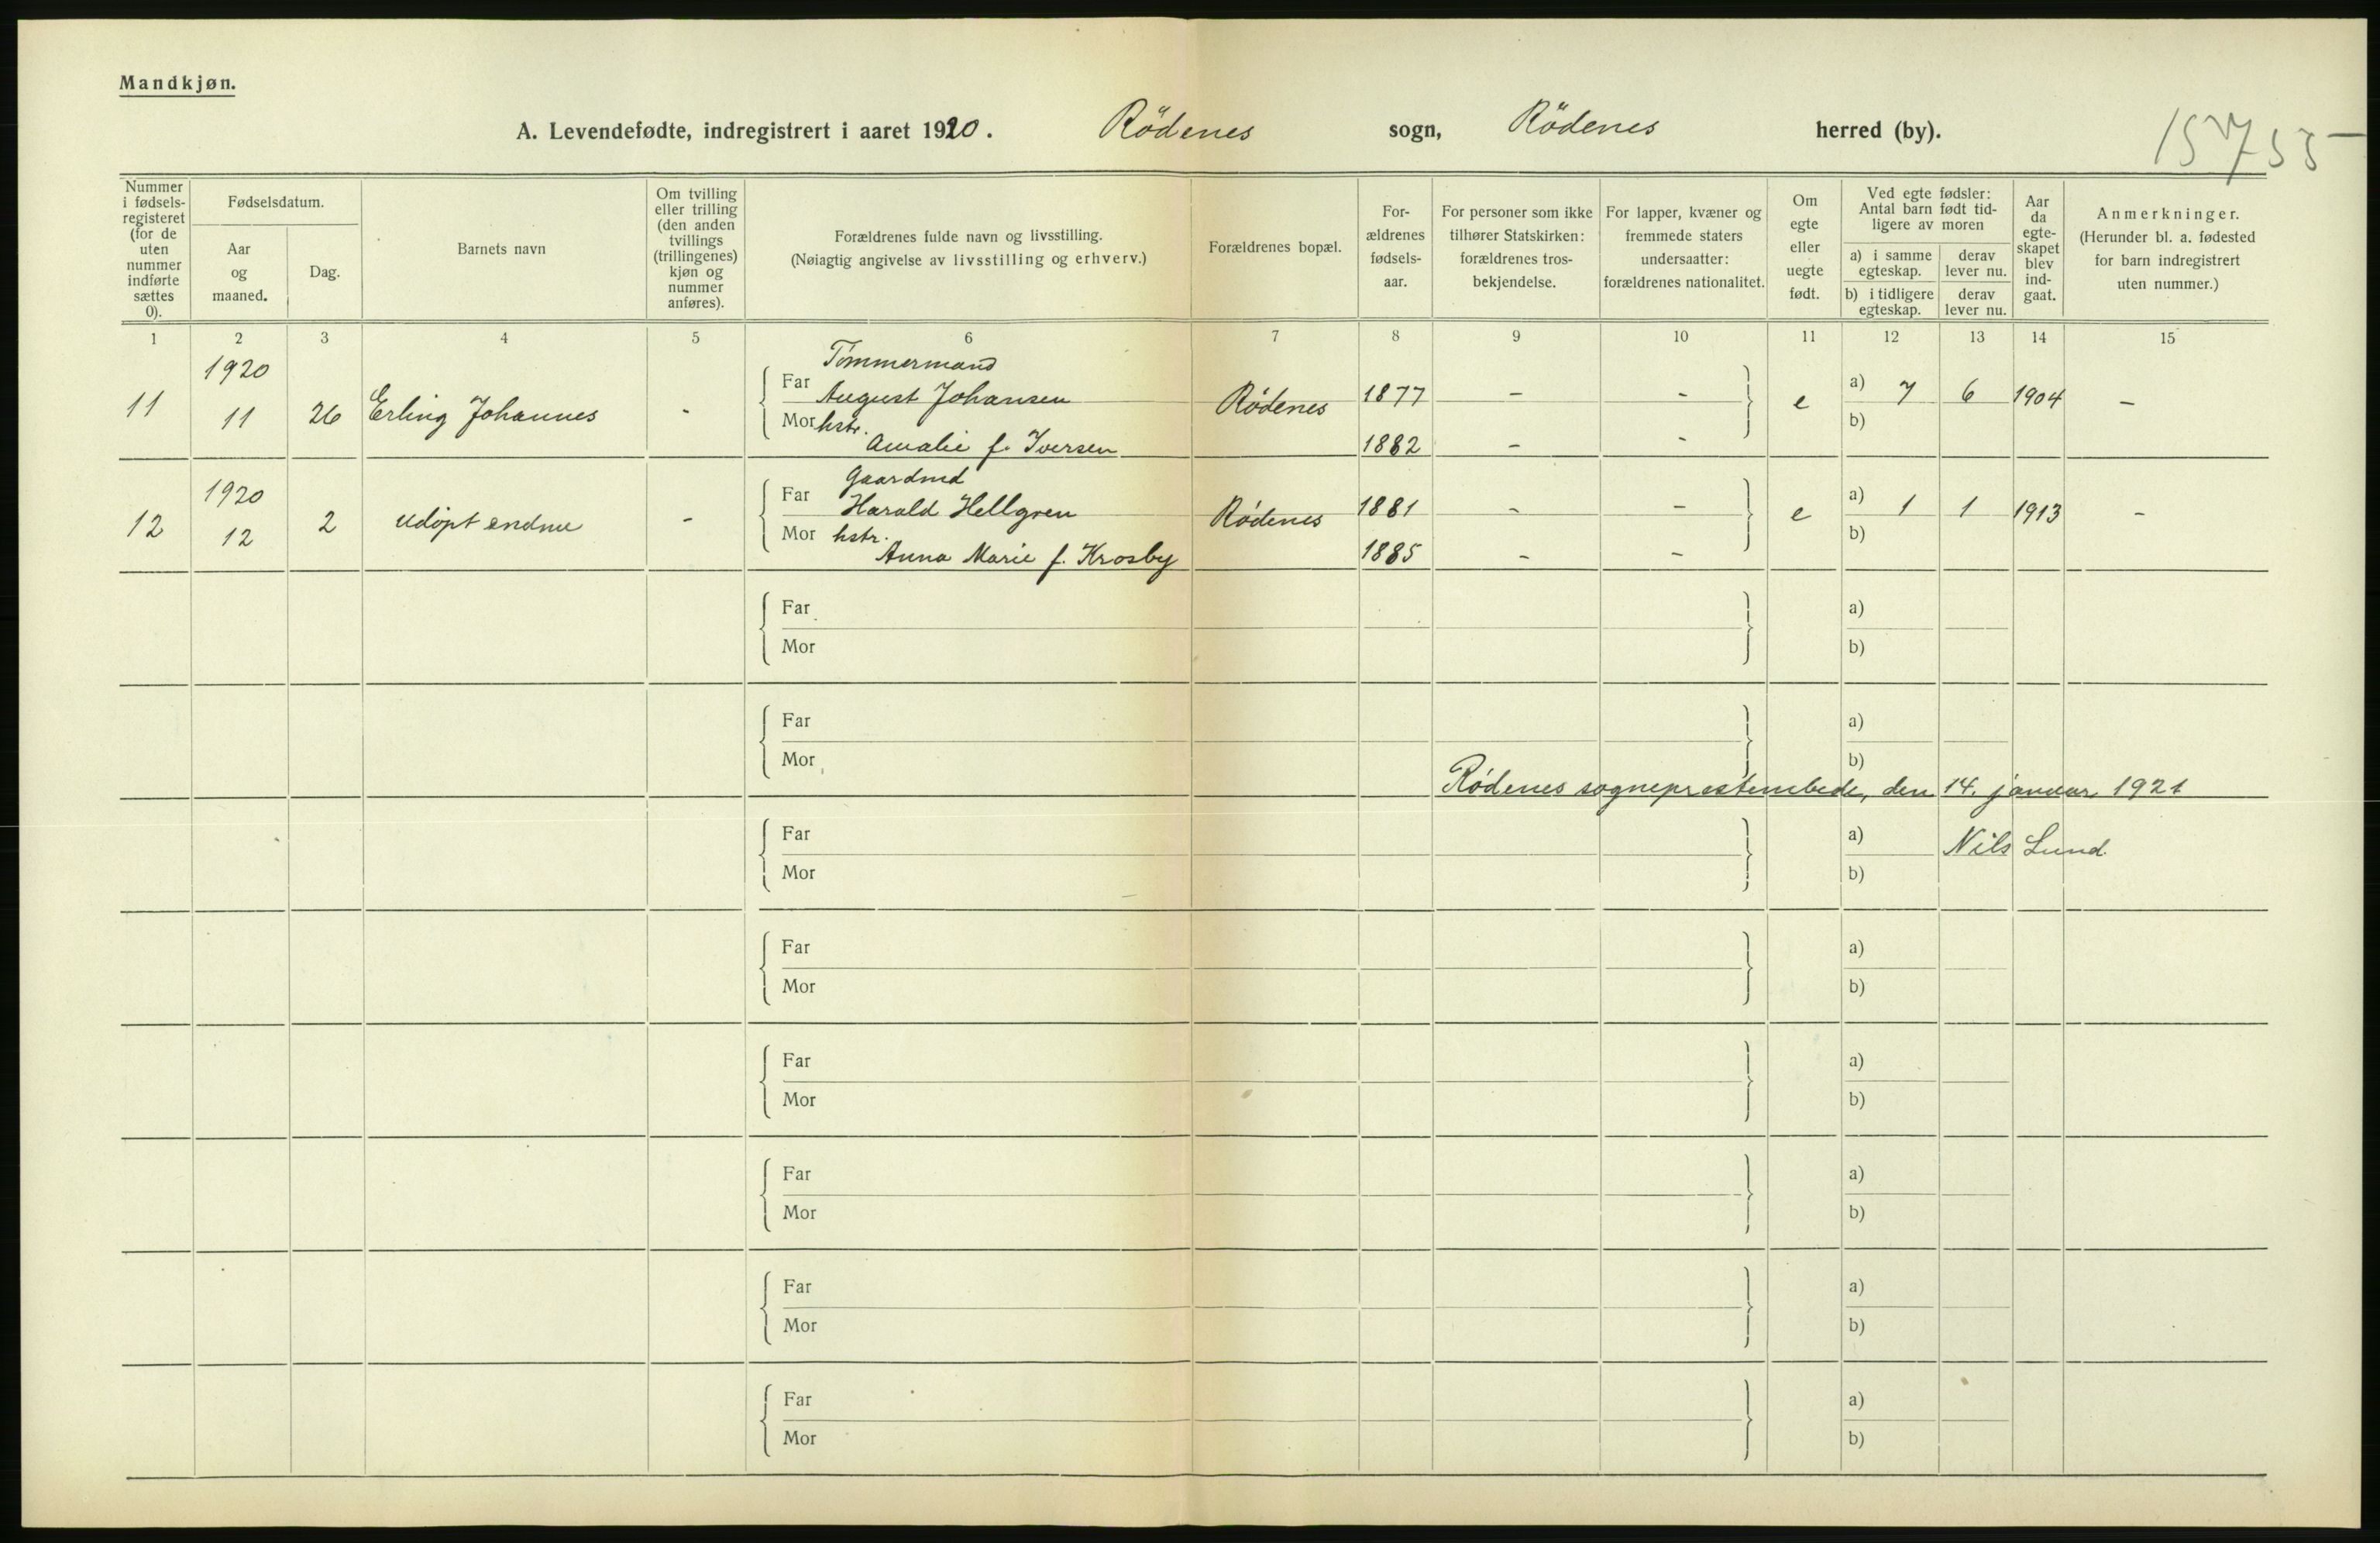 Mandkjøn.
A. Levendefødte, indregistrert i aaret 1920. Rödenes sogn, Rödenes herred (by).
15755
Nummer i fødsels-registeret (for de uten nummer indførte sættes 0).
Fødselsdatum.
Aar og maaned.
Dag.
Barnets navn
Om tvilling eller trilling (den anden tvillings (trillingenes) kjøn og nummer anføres).
Forældrenes fulde navn og livsstilling.
(Nøiagtig angivelse av livsstilling og erhverv.)
Forældrenes bopæl.
For-ældrenes fødsels-aar.
For personer som ikke tilhører Statskirken: forældrenes tros-bekjendelse.
For lapper, kvæner og fremmede staters undersaatter: forældrenes nationalitet.
Om egte eller uegte født.
Ved egte fødsler: Antal barn født tid-ligere av moren
a) i samme egteskap.
derav lever nu.
b) i tidligere egteskap.
derav lever nu.
Aar da egte-skapet blev ind-gaat.
Anmerkninger.
(Herunder bl. a. fødested for barn indregistrert uten nummer.)
1 2 3 4 5 6 7 8 9 10 11 12 13 14 15
1920 Tømmermand
11 11 26 Erling Johannes - Far August Johansen Rødenes 1877 - - e a) 7 6 1904 -
Mor hstr. Amalie f. Iversen 1882 - - b)
1920 Gaardmd
12 12 2 udöpt endnu - Far Harald Hellgren Rødenes 1881 - - e a) 1 1 1913 -
Mor hstr. Anna Marie f. Krosby 1885 - - b)
Far a)
Mor b)
Far a)
Mor b)
Rødenes sogneprestembede, den 14. januar 1921
Far a) Nils Lund.
Mor b)
Far a)
Mor b)
Far a)
Mor b)
Far a)
Mor b)
Far a)
Mor b)
Far a)
Mor b)